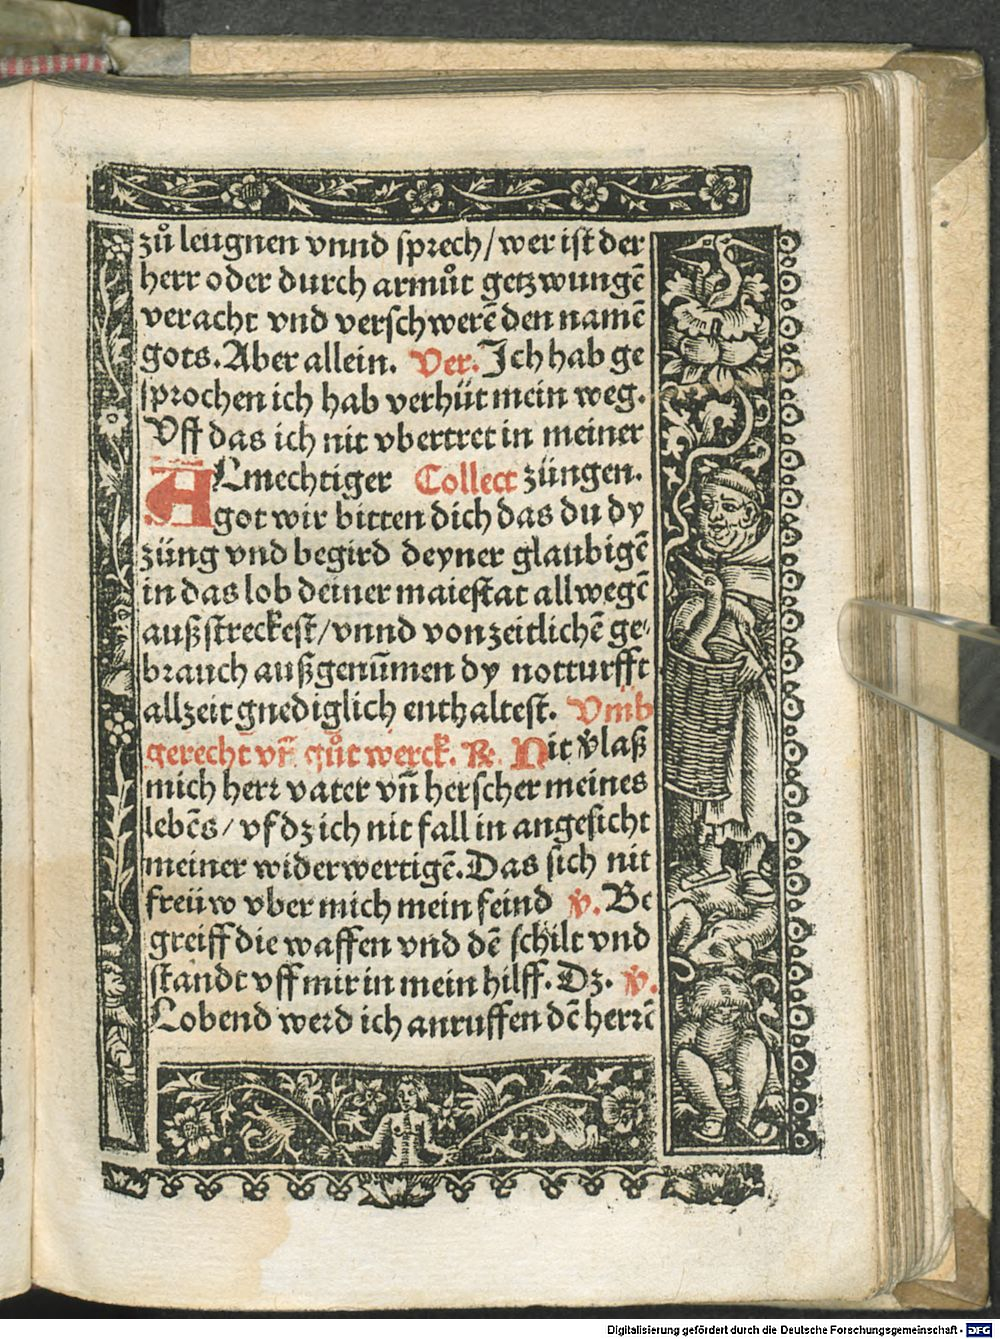 zů leugnen vnnd sprech/wer ist der
herr oder durch armůt getzwungē
veracht vnd verschwerē den namē
gots. Aber allein. Ver. Ich hab ge
sprochen ich hab verhüt mein weg.
Vff das ich nit vbertret in meiner
ALmechtiger Collect züngen.
got wir bitten dich das du dy
züng vnd begird deyner glaubigē
in das lob deiner maiestat allwegē
außstreckest/vnnd von zeitlichē ge⸗
brauch außgenūmen dy notturfft
allzeit gnediglich enthaltest. Vmb
gerecht vñ gůt werck. ℞. Nit v̄laß
mich herr vater vñ herscher meines
lebēs/vf dz ich nit fall in angesicht
meiner widerwertigē. Das sich nit
freüw vber mich mein feind v̄. Be
greiff die waffen vnd dē schilt vnd
standt vff mir in mein hilff. Dz. v̄.
Lobend werd ich anruffen dē herrē
Digitalisierung gefördert durch die Deutsche Forschungsgemeinschaft - DFG